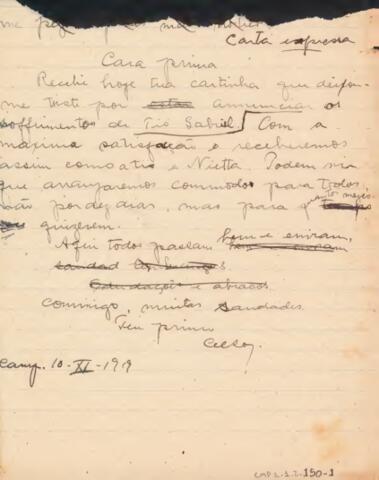 me
Carta expressa
Cara prima
Recebi hoje tua cartinha que deixou-
me triste por annunciar os
soffrimentos de Tio Gabriel. Com a
maxima satisfação o receberemos
assim como a tia e Nietta. Podem vir
que arranjaremos commodos para todos,
não por dez dias, mas para quantos mezes
quizerem.
Aqui todos passam bem e enviam,
saudações e abraços
commigo, muitas saudades.
Teu primo
Celso.
Camp. 10-XI-919
CMP.2.1.2.150-1